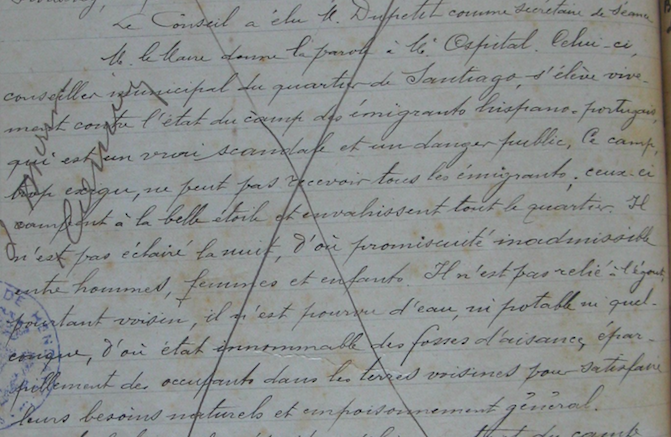 Le Conseil a élu M. Dupetet comme secrétaire de séance
M. le Maire donne la parole à Mr Ospital. Celui-ci,
conseiller municipal du quartier de Santiago, s'élève vive-
ment contre l'état du camp des émigrants hispano-portugais,
qui est un vrai scandale et un danger public. Ce camp,
trop exigu, ne peut pas recevoir tous les émigrants; ceux-ci
campent à la belle étoile et envahissent tout le quartier. Il
n'est pas éclairé la nuit, d'où promiscuité inadmissible
entre hommes, femmes et enfants. Il n'est pas relié à l'égout,
pourtant voisin, il n'est pourvu d'eau, ni potable ni quel-
conque, d'où état innommable des fosses d'aisance, épar-
pillement des occupants dans les terres voisines pour satisfaire
leurs besoins naturels et empoisonnement général.
DE HEN